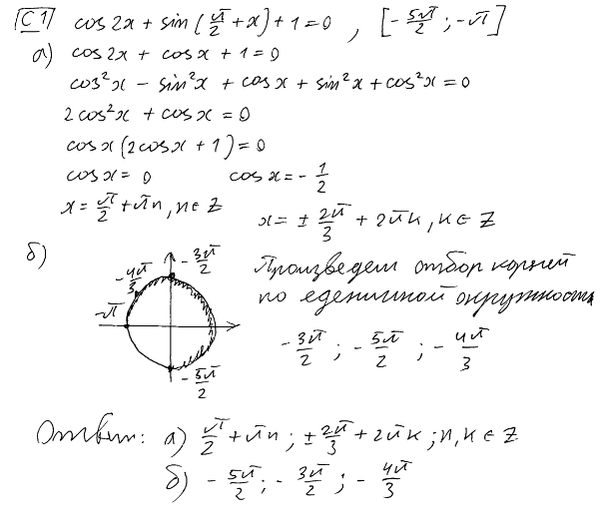 C1 cos 2x + sin (π/2 + x) + 1 = 0 , [-5π/2 ; -π]
а) cos 2x + cos x + 1 = 0
cos²x - sin²x + cos x + sin²x + cos²x = 0
2cos²x + cos x = 0
cos x (2cos x + 1) = 0
cos x = 0 cos x = -1/2
x = π/2 + πn, n ∈ Z x = ± 2π/3 + 2πk, k ∈ Z
б)
-3π/2
-4π/3
-π
-5π/2
Произведем отбор корней
по еденичной окружности
-3π/2 ; -5π/2 ; -4π/3
Ответ: а) π/2 + πn ; ± 2π/3 + 2πk ; n, k ∈ Z
б) -5π/2 ; -3π/2 ; -4π/3